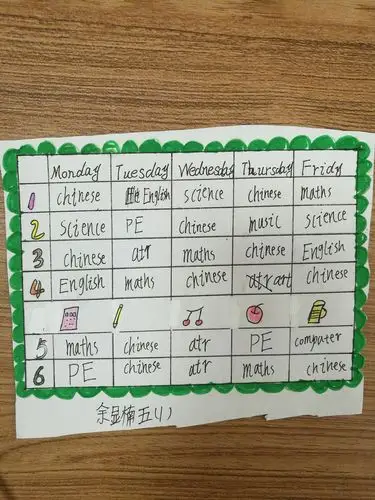 Monday Tuesday Wednesday Thursday Fridy
1 chinese English science chinese maths
2 science PE chinese music science
3 chinese atr maths chinese English
4 English maths chinese art chinese
5 maths chinese atr PE computer
6 PE chinese atr maths chinese
余显楠五(1)